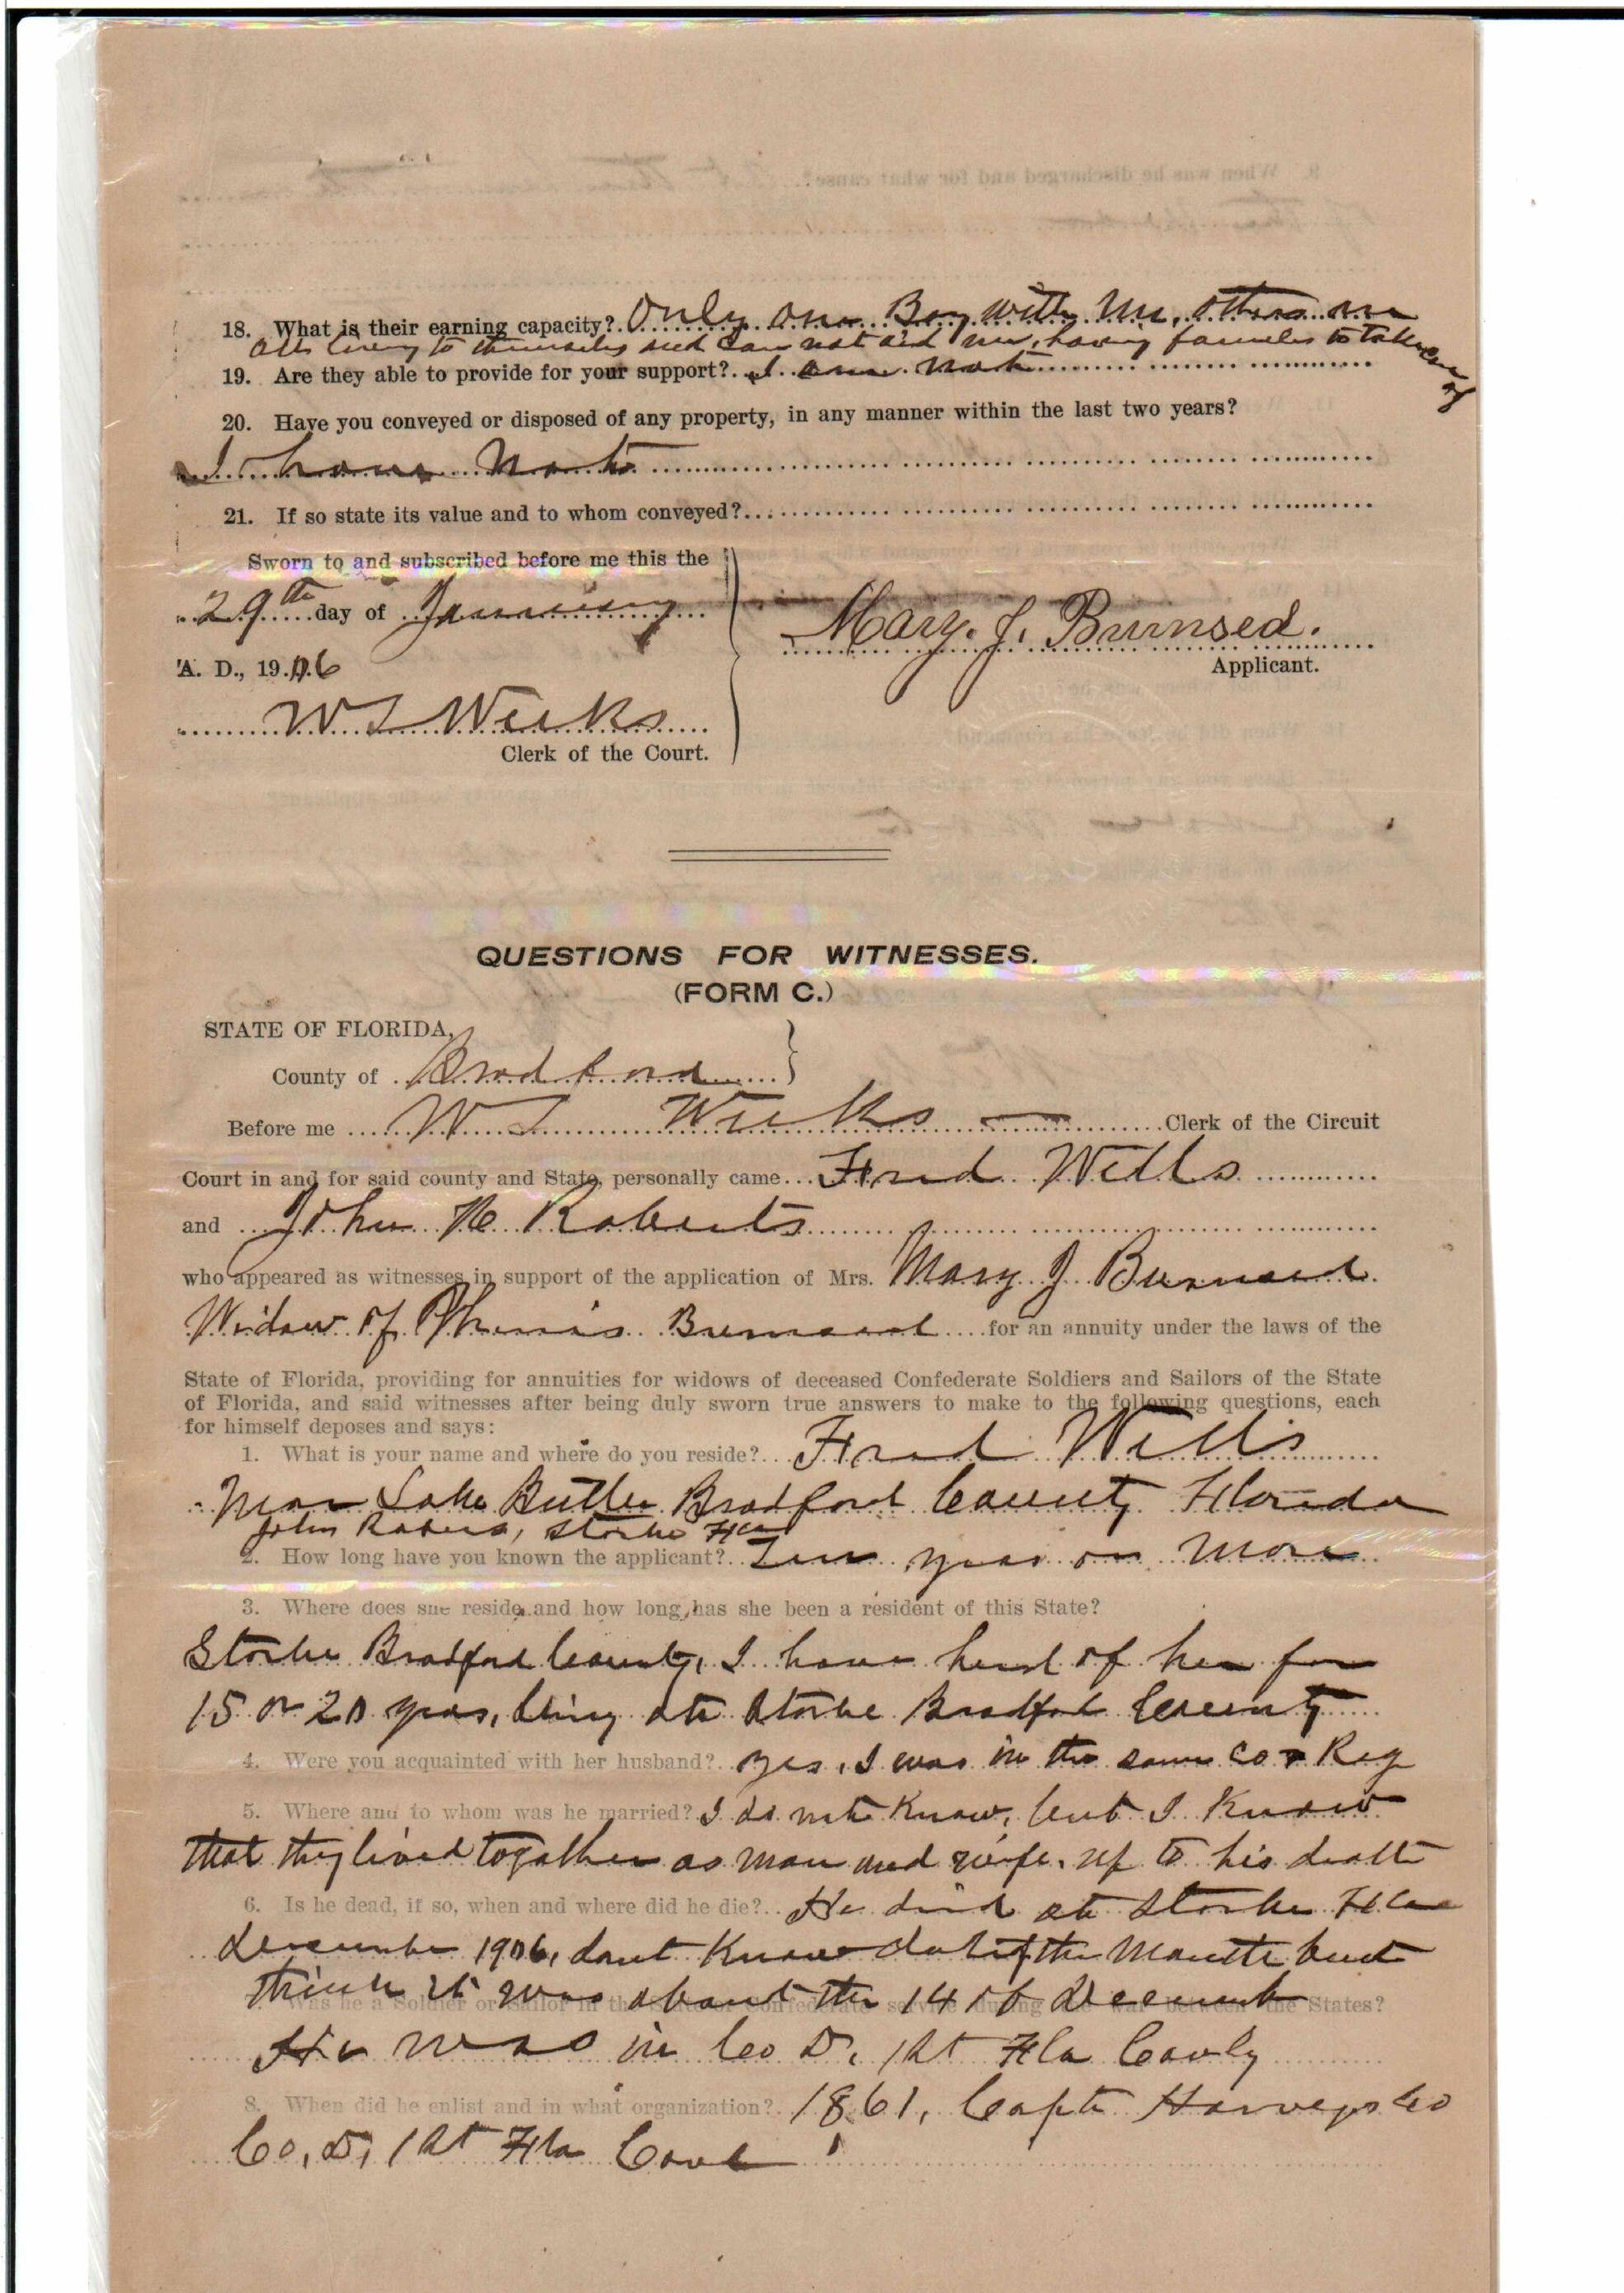 18. What is their earning capacity? Only one Boy with me, others are
all living to themselves and can not aid me, having families to take care of
19. Are they able to provide for your support? I am not
20. Have you conveyed or disposed of any property, in any manner within the last two years?
I have not
21. If so state its value and to whom conveyed?
Sworn to and subscribed before me this the
29th day of January
A. D., 1906
Mary. J. Brunsed.
Applicant.
W L Weeks
Clerk of the Court.
QUESTIONS FOR WITNESSES.
(FORM C.)
STATE OF FLORIDA,
County of Bradford
Before me W L Weeks Clerk of the Circuit
Court in and for said county and State, personally came Fred Wells
and John H Roberts
who appeared as witnesses in support of the application of Mrs. Mary J Burnsed
Widow of Thomas Burnsed for an annuity under the laws of the
State of Florida, providing for annuities for widows of deceased Confederate Soldiers and Sailors of the State
of Florida, and said witnesses after being duly sworn true answers to make to the following questions, each
for himself deposes and says:
1. What is your name and where do you reside? Fred Wells
Near Lake Butler Bradford County Florida
John Roberts, Starke Fla
2. How long have you known the applicant? Ten years or more
3. Where does she reside and how long has she been a resident of this State?
Starke Bradford County, I have herd of her for
15 or 20 years, living at Starke Bradford County
4. Were you acquainted with her husband? yes, I was in the same Co & Reg
5. Where and to whom was he married? I do not Know, but I Know
that they lived together as man and wife, up to his death
6. Is he dead, if so, when and where did he die? He died at Starke Fla
December 1906, dont Know date of the Month but
think it was about the 14 of December
Was he a Soldier or Sailor in the Confederate service during the between the States?
He was in Co D, 1st Fla Cavly
8. When did he enlist and in what organization? 1861, Capt Harveys Co
Co, D, 1st Fla Cav